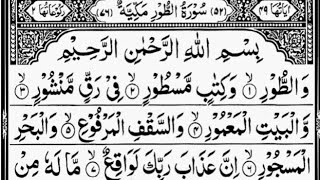 اٰيَاتُهَا ٤٩ (٥٢) سُوْرَةُ الطُّوْرِ مَكِّيَّةٌ (٧٦) رُكُوْعَاتُهَا ٢
بِسْمِ اللّٰهِ الرَّحْمٰنِ الرَّحِيْمِ
وَالطُّوْرِ ۝١ وَكِتٰبٍ مَّسْطُوْرٍ ۝٢ فِيْ رَقٍّ مَّنْشُوْرٍ ۝٣
وَّالْبَيْتِ الْمَعْمُوْرِ ۝٤ وَالسَّقْفِ الْمَرْفُوْعِ ۝٥ وَالْبَحْرِ
الْمَسْجُوْرِ ۝٦ اِنَّ عَذَابَ رَبِّكَ لَوَاقِعٌ ۝٧ مَّا لَهٗ مِنْ